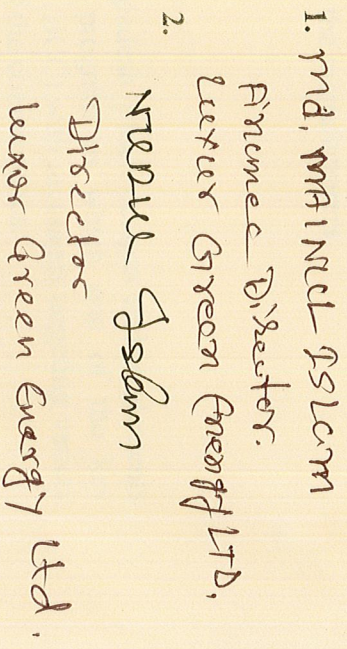 1. Md. MAINUL ISLAM
Finance Director.
Luxur Green Energy LTD.
2.
NAZRUL Islam
Director
Luxor Green Energy Ltd.